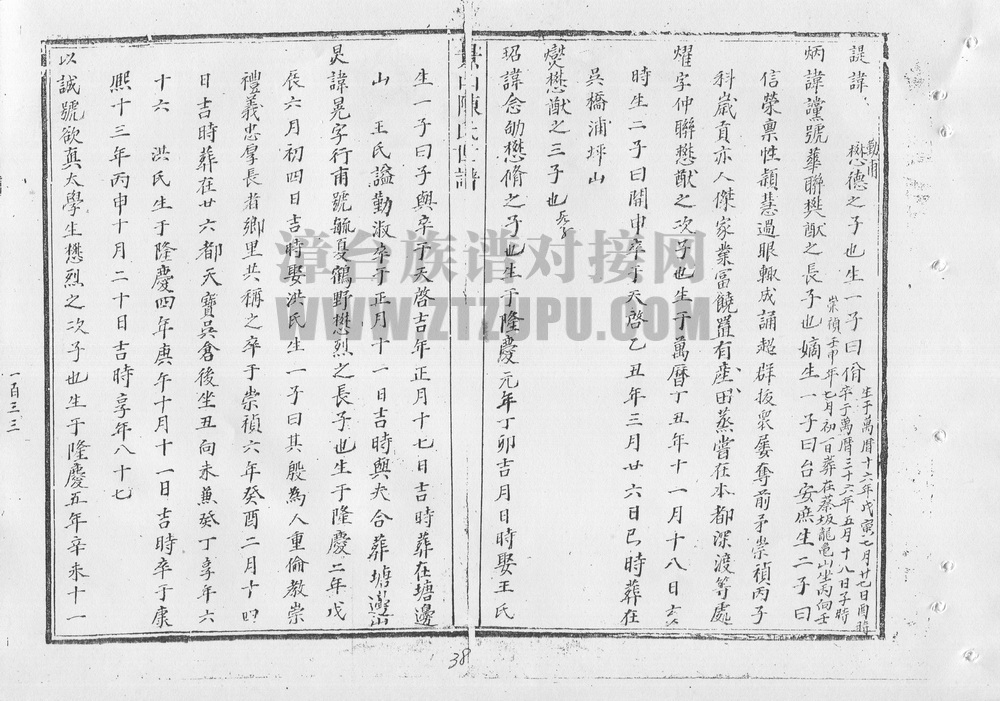 諟諱 懋德之子也生一子曰佾
勳甫
生于萬曆十六年戊寅七月廿七日酉時
卒于萬曆三十六年五月十八日子時
炳諱讜號華聯懋猷之長子也嫡生一子曰台安庶生二子曰
崇禎壬申年七月初一日葬在蔡坂龍亀山坐丙向壬
信榮禀性頴慧過眼輙成誦超群拔衆屡奪前矛崇禎丙子
科歲貢亦人傑家業富饒置有產田蒸嘗在本都深渡等處
燿字仲聯懋猷之次子也生于萬曆丁丑年十一月十八日
時生二子曰開申卒于天啓乙丑年三月廿六日巳時葬在
吳橋浦坪山
燮懋猷之三子也 無子
玿諱念劬懋脩之子也生于隆慶元年丁卯吉月日時娶王氏
景山陳氏世譜
生一子曰子輿卒于天啓吉年正月十七日吉時葬在塘邊
山 王氏謚勤淑卒于正月十一日吉時與夫合葬塘邊山
炅諱晃字行甫號毓夏鶴野懋烈之長子也生于隆慶二年戊
辰六月初四日吉時娶洪氏生一子曰其殷為人重倫教崇
禮義忠厚長者鄉里共稱之卒于崇禎六年癸酉二月十四
日吉時葬在廿六都天寶吳倉後坐丑向未兼癸丁享年六
十六 洪氏生于隆慶四年庚午十月十一日吉時卒于康
熙十三年丙申十月二十日吉時享年八十七
以誠號欲真太學生懋烈之次子也生于隆慶五年辛未十一
一百三三
38
漳台族谱对接网
WWW.ZTZUPU.COM